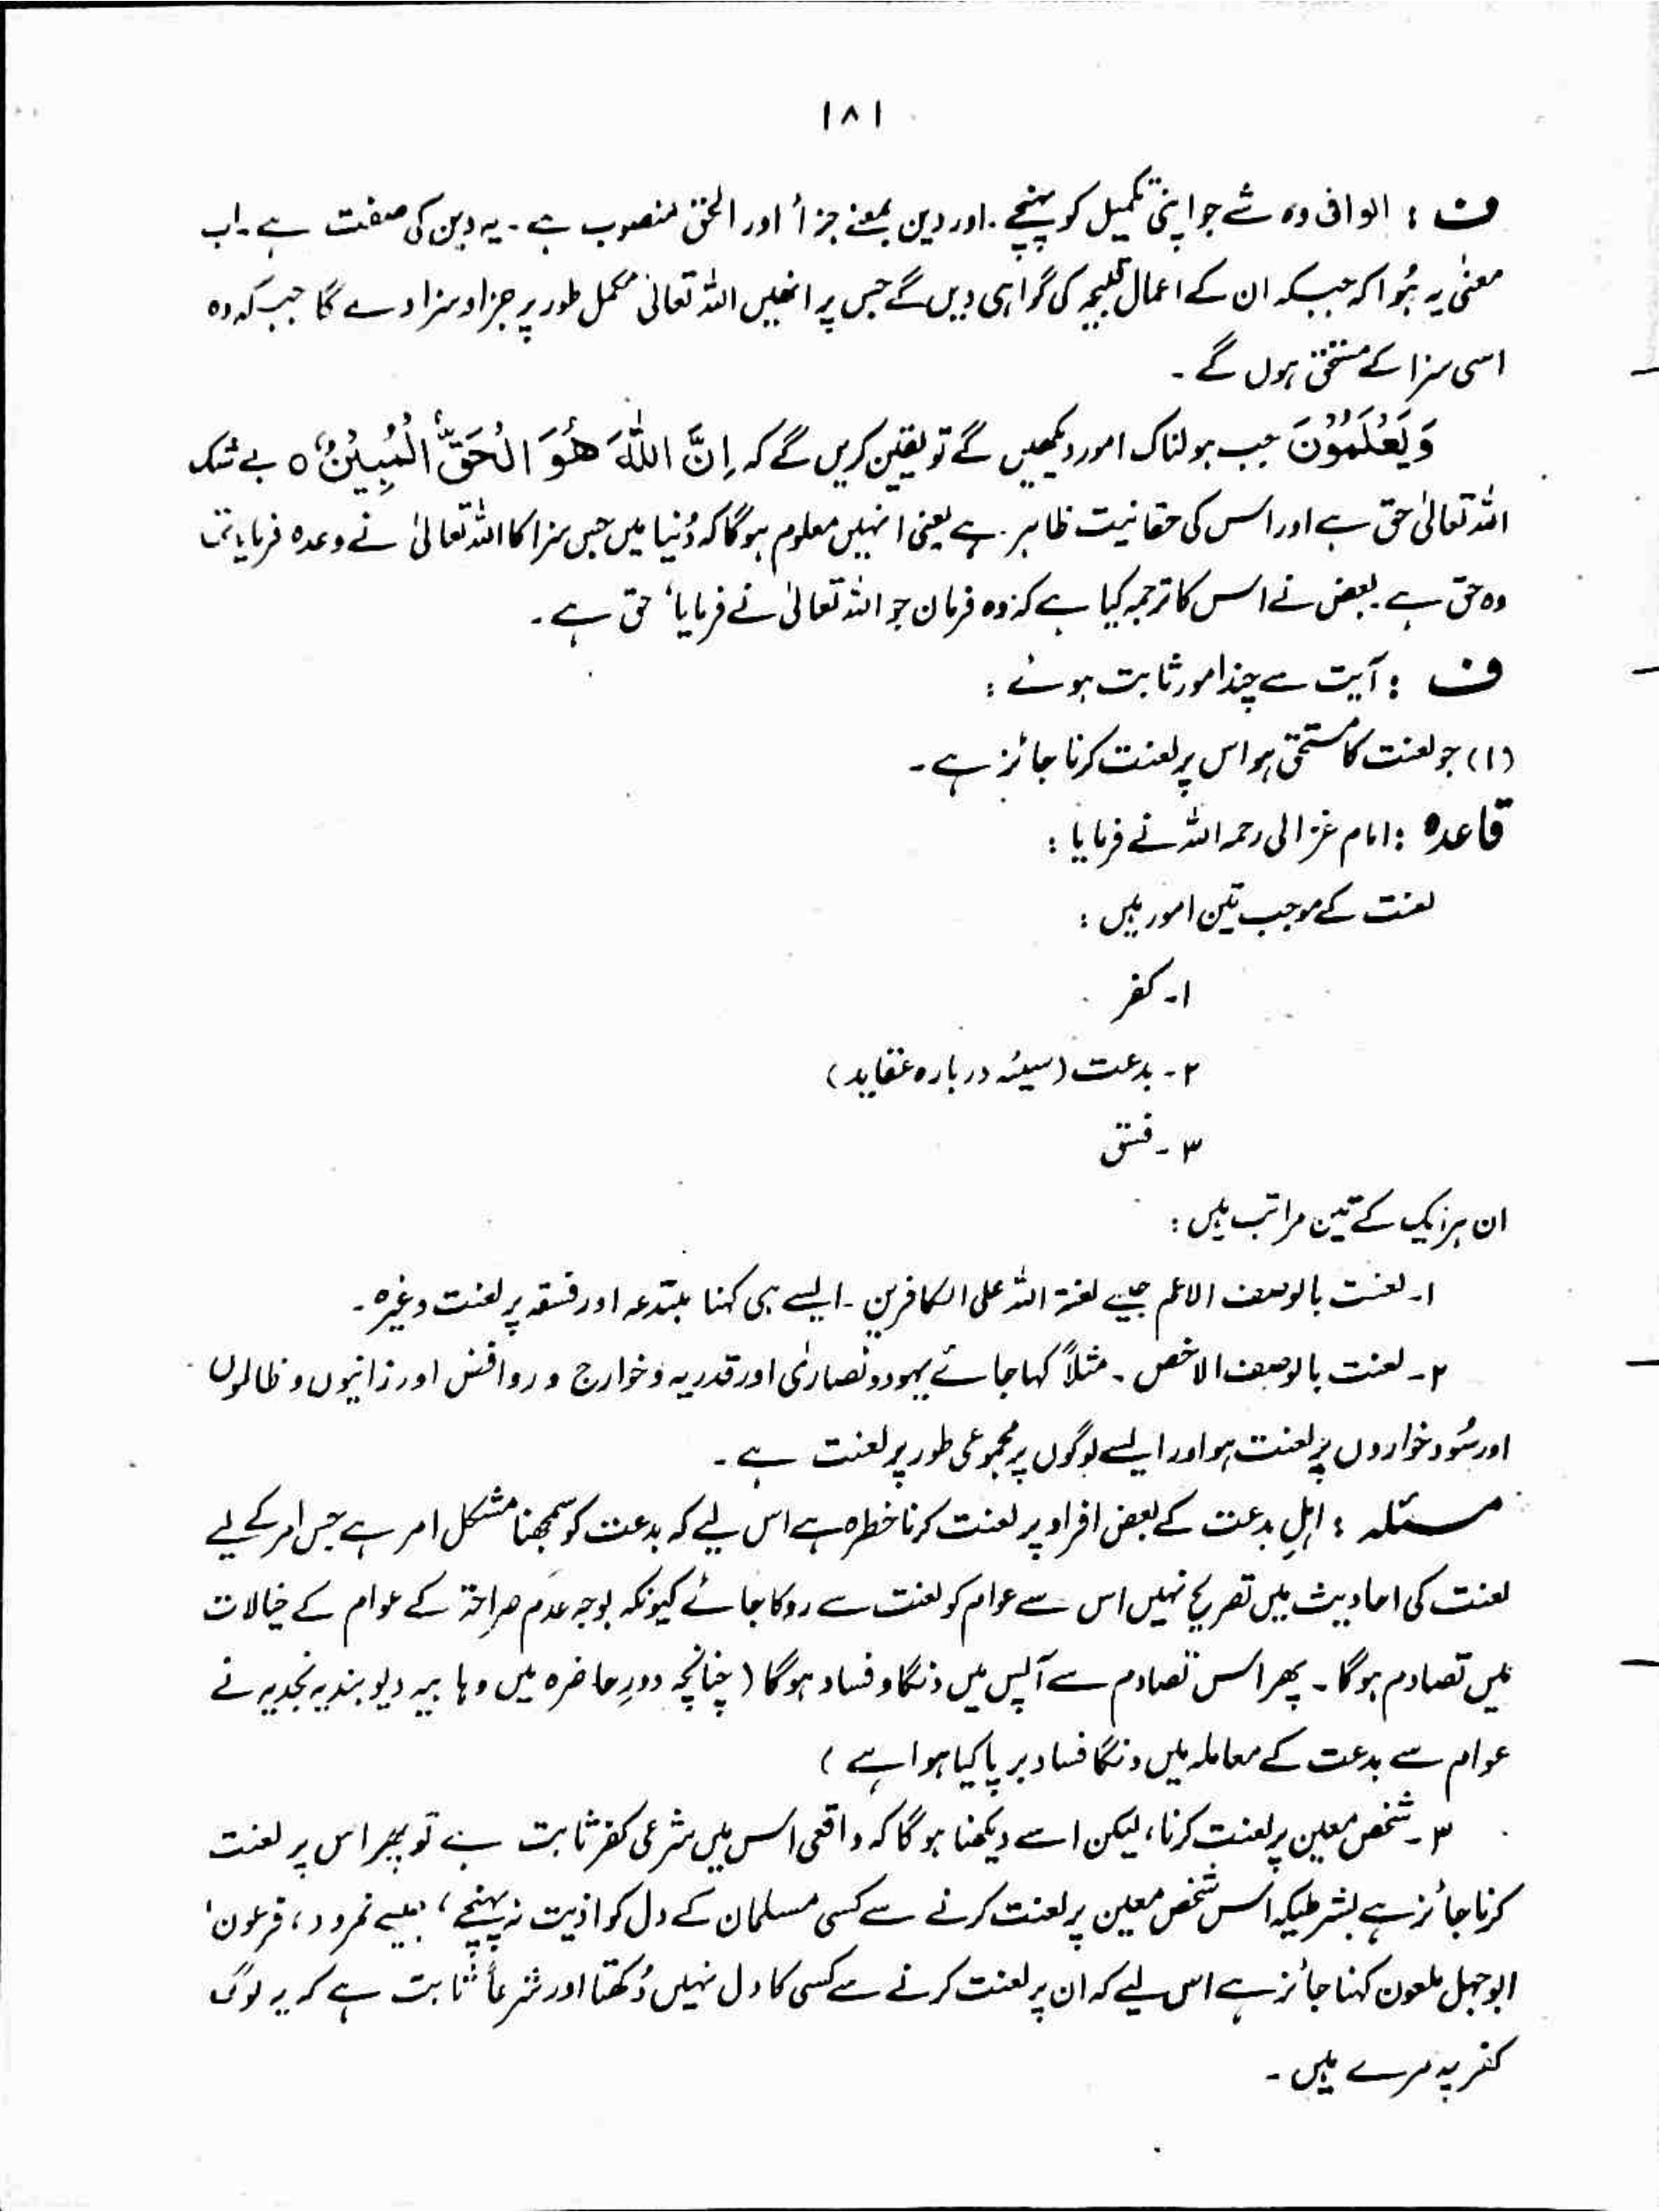 ۱۸۱
ف : الوافی وہ شے جو اپنی تکمیل کو پہنچے ۔ اور دین بمعنے جزأ اور الحق منصوب ہے ۔ یہ دین کی صفت ہے ۔ اب
معنیٰ یہ ہُوا کہ جبکہ ان کے اعمال قبیحہ کی گواہی دیں گے جس پر انھیں اللہ تعالیٰ مکمل طور پر جزا و سزا دے گا جب کہ وہ
اسی سزا کے مستحق ہوں گے ۔
وَيَعْلَمُوْنَ جب ہولناک امور دیکھیں گے تو یقین کریں گے کہ اِنَّ اللّٰهَ هُوَ الْحَقُّ الْمُبِيْنُ ○ بے شک
اللہ تعالیٰ حق ہے اور اس کی حقانیت ظاہر ہے یعنی انہیں معلوم ہوگا کہ دُنیا میں جس سزا کا اللہ تعالیٰ نے وعدہ فرمایا تھا
وہ حق ہے ۔ بعض نے اس کا ترجمہ کیا ہے کہ وہ فرمان جو اللہ تعالیٰ نے فرمایا ، حق ہے ۔
ف : آیت سے چند امور ثابت ہوئے :
(۱) جو لعنت کا مستحق ہو اس پر لعنت کرنا جائز ہے ۔
قاعدہ : امام غزالی رحمہ اللہ نے فرمایا :
لعنت کے موجب تین امور ہیں :
۱ ۔ کفر
۲ ۔ بدعت (سیئہ دربارہ عقاید)
۳ ۔ فسق
ان ہر ایک کے تین مراتب ہیں :
۱ ۔ لعنت بالوصف الاعم جیسے لعنۃ اللہ علی الکافرین ۔ ایسے ہی کہنا مبتدعہ اور فسقہ پر لعنت وغیرہ ۔
۲ ۔ لعنت بالوصف الاخص ۔ مثلاً کہا جائے یہود و نصاریٰ اور قدریہ و خوارج و روافض اور زانیوں و ظالموں
اور سُود خواروں پر لعنت ہو اور ایسے لوگوں پر مجموعی طور پر لعنت ہے ۔
مسئلہ : اہلِ بدعت کے بعض افراد پر لعنت کرنا خطرہ ہے اس لیے کہ بدعت کو سمجھنا مشکل امر ہے جس امر کے لیے
لعنت کی احادیث میں تصریح نہیں اس سے عوام کو لعنت سے روکا جائے کیونکہ بوجہ عدم صراحۃ کے عوام کے خیالات
میں تصادم ہوگا ۔ پھر اس تصادم سے آپس میں دنگا و فساد ہوگا ( چنانچہ دورِ حاضرہ میں وہابیہ دیوبندیہ نجدیہ نے
عوام سے بدعت کے معاملہ میں دنگا فساد برپا کیا ہوا ہے )
۳ ۔ شخص معین پر لعنت کرنا ، لیکن اسے دیکھنا ہوگا کہ واقعی اس میں شرعی کفر ثابت ہے تو پھر اس پر لعنت
کرنا جائز ہے بشرطیکہ اس شخص معین پر لعنت کرنے سے کسی مسلمان کے دل کو اذیت نہ پہنچے ، جیسے نمرود ، فرعون ،
ابوجہل ملعون کہنا جائز ہے اس لیے کہ ان پر لعنت کرنے سے کسی کا دل نہیں دُکھتا اور شرعاً ثابت ہے کہ یہ لوگ
کفر پہ مرے ہیں ۔